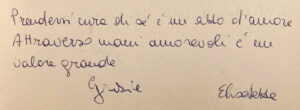 Prendersi cura di sé è un atto d'amore
Attraverso mani amorevoli è un
valore grande
Giusie Elisabetta